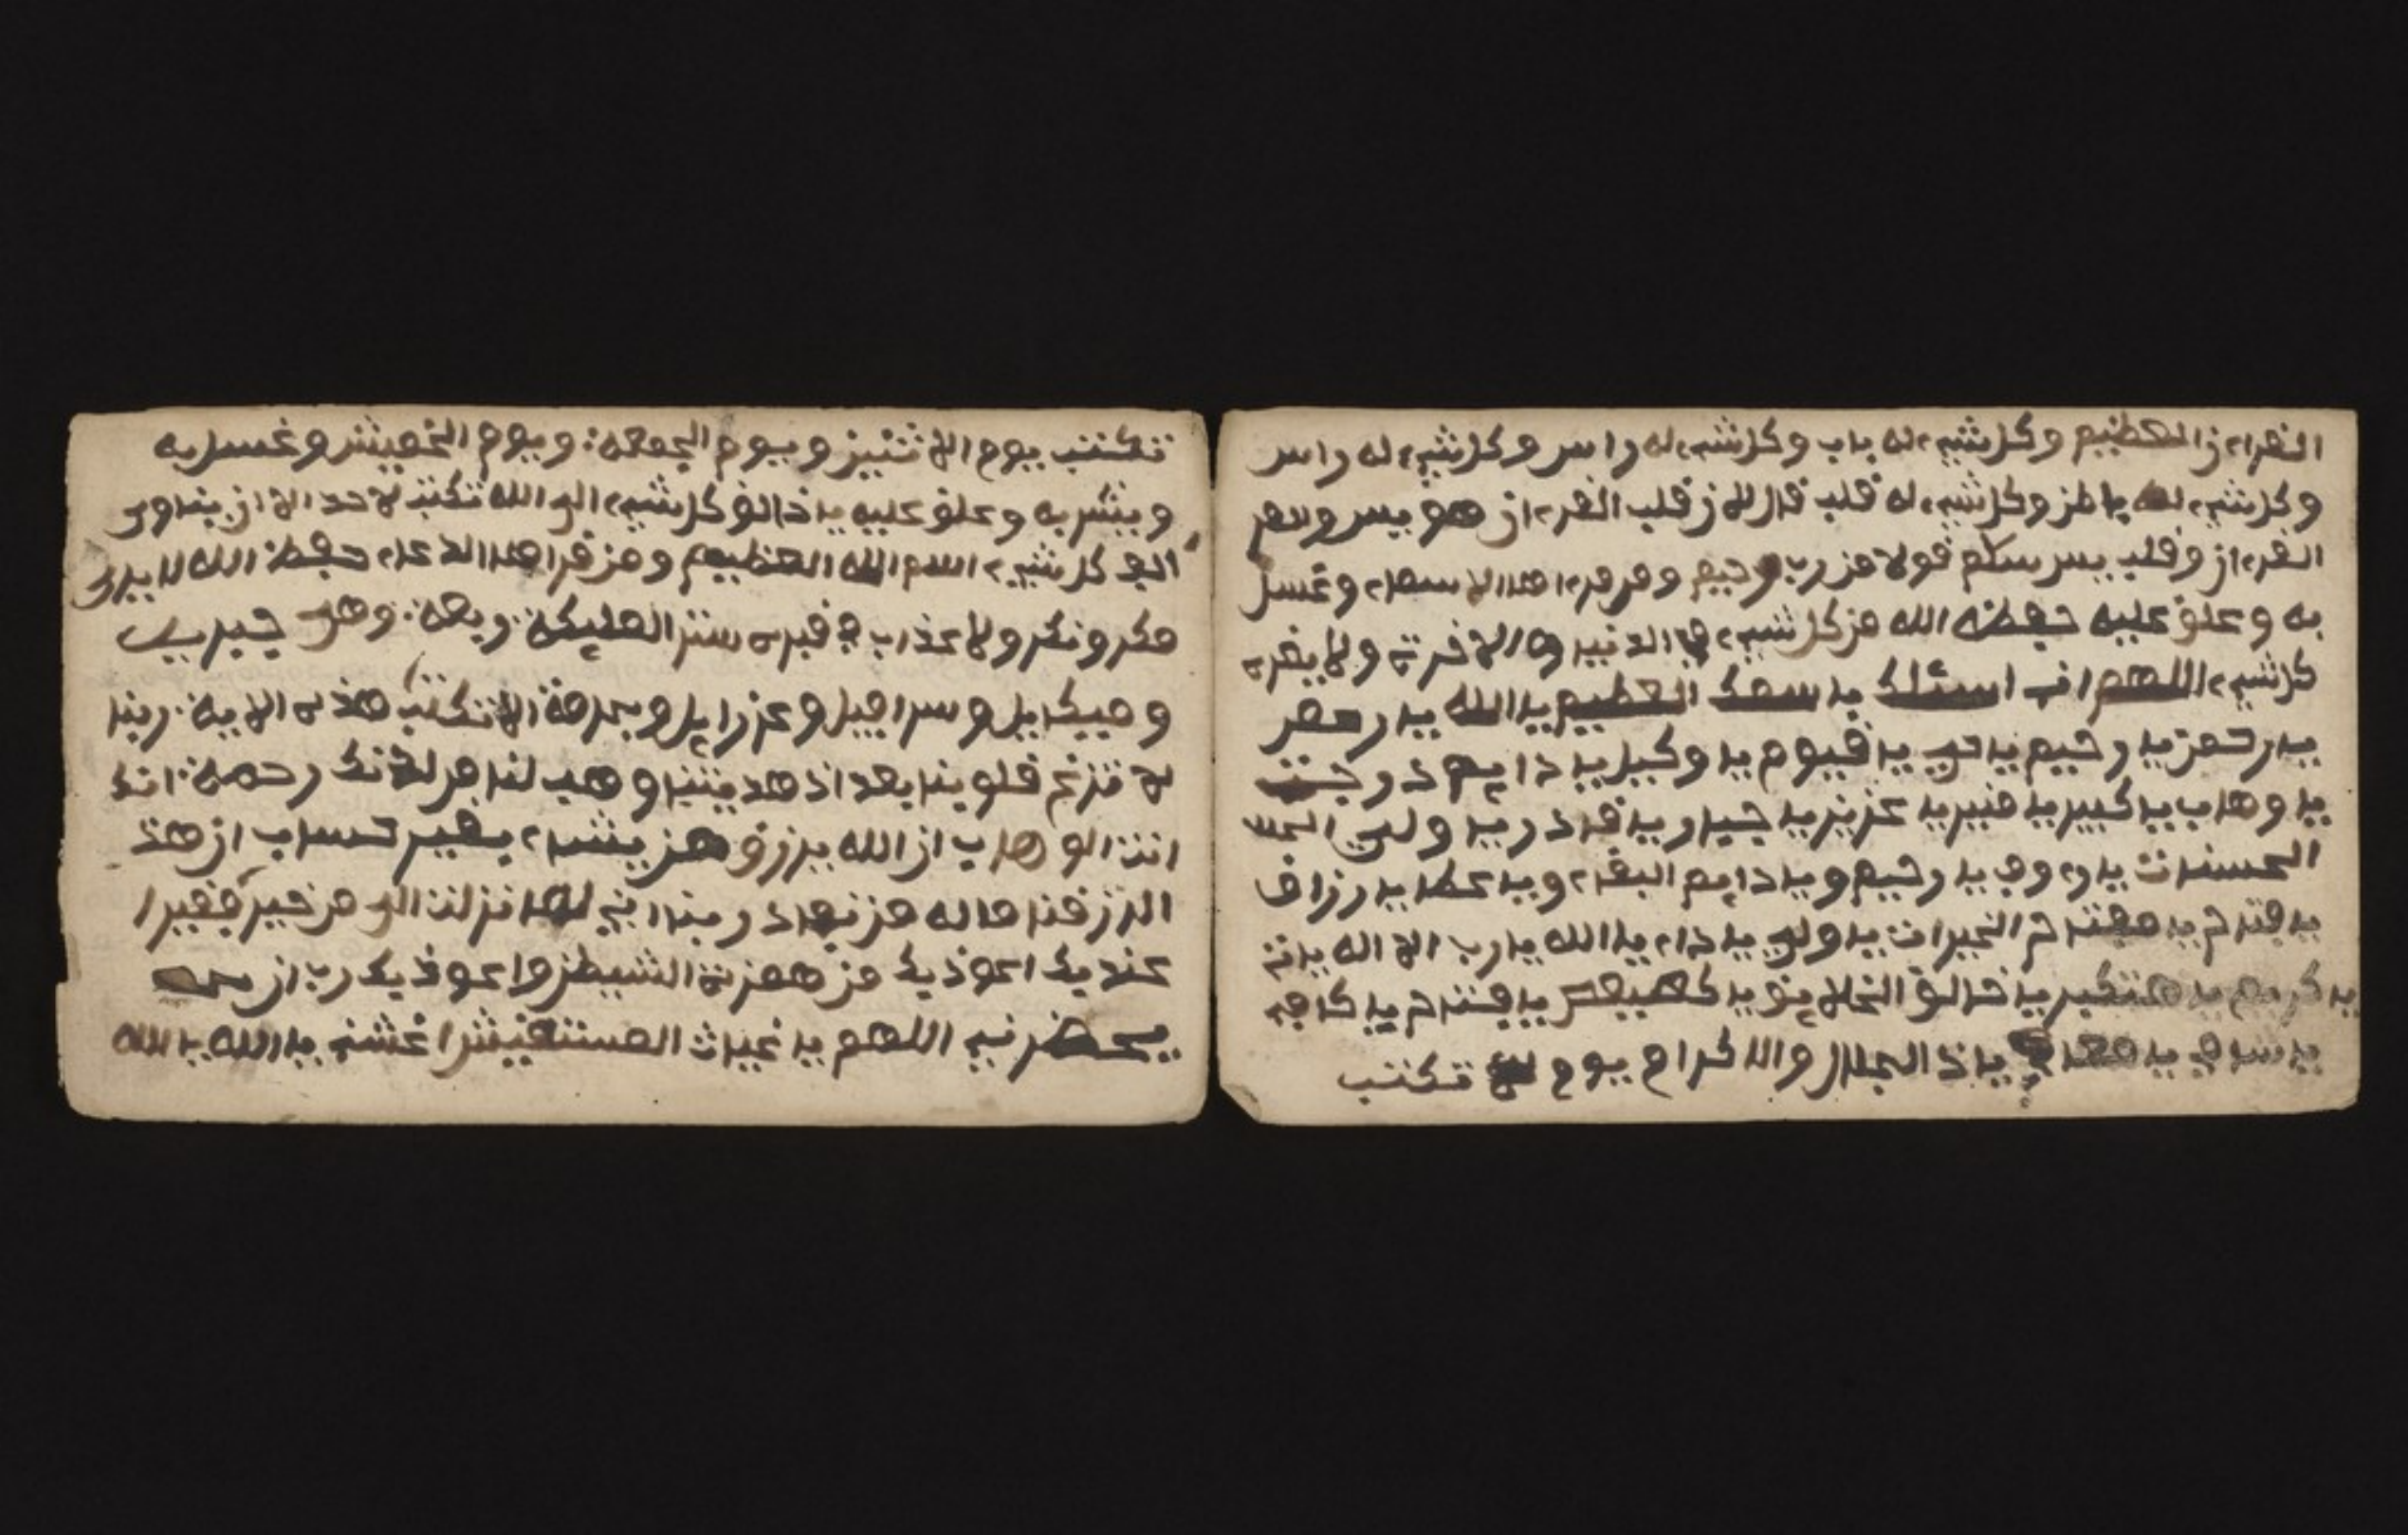 القرءان العظيم وكل شيء له باب وكل شيء له راس وكل شيء له راس
وكل شيء له باطن وكل شيء له قلب قال لان قلب القرءان هو يس
القرءان وقلب يس سلم قولا من رب رحيم ومن هذا الاسماء وغسل
به وعلق عليه حفظه الله من كل شيء في الدنيا والاخرة ولا يضره
كل شيء اللهم اني اسئلك با سمك العظيم يا الله يا رحمن
يا رحمن يا رحيم يا حي يا قيوم يا وكيل يا دايم
يا وهاب يا كبير يا منير يا عزيز يا جبار يا قادر يا ولي
الحسنات يا رءوف يا رحيم ويا دايم البقاء ويا عطا يا رزاق
يا فتاح يا مفتاح الخيرات يا ولي يا الله يا رب الا اله
يا كريم يا متكبر يا خالق الخلايق يا كهيعص يا فتاح يا كافي
يا شافي يا معافي يا ذالجلال والاكرام يوم تكتب
تكتب يوم الاثنين ويوم الجمعة ويوم الخميس وغسل به
ويشربه وعلق عليه يا خالق كل شيء الى الله تكتب لاحد الا ان
كل شيء اسم الله العظيم ومن قرا هذا الدعاء حفظ الله
منكر ونكر ولا عذاب في قبره ستر المليكة وهي جبريل
وميكايل وسرافيل وعزرايل وبحرمة الا تكتب هذه الاية ربنا
لا تزغ قلوبنا بعد اذ هديتنا وهب لنا من لدنك رحمة انك
انت الوهاب ان الله يرزق من يشاء بغير حساب ان هذ
الرزقنا ماله من نفاد ربنا اني لما نزلت الي من خير فقيرا
عنديك اعوذ بك من همزة الشيطن واعوذ بك رب ان
يحضرني اللهم يا غياث المستغيثين اغثني يا الله يا الله